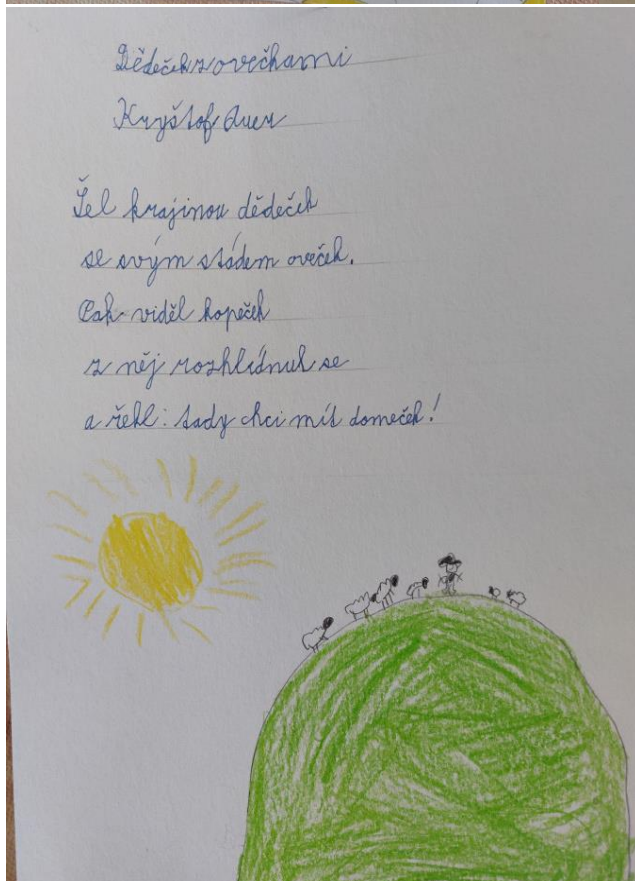 Dědeček s ovečkami
Kryštof Auer
Šel krajinou dědeček
se svým stádem oveček.
Pak viděl kopeček
z něj rozhlédnul se
a řekl: tady chci mít domeček!